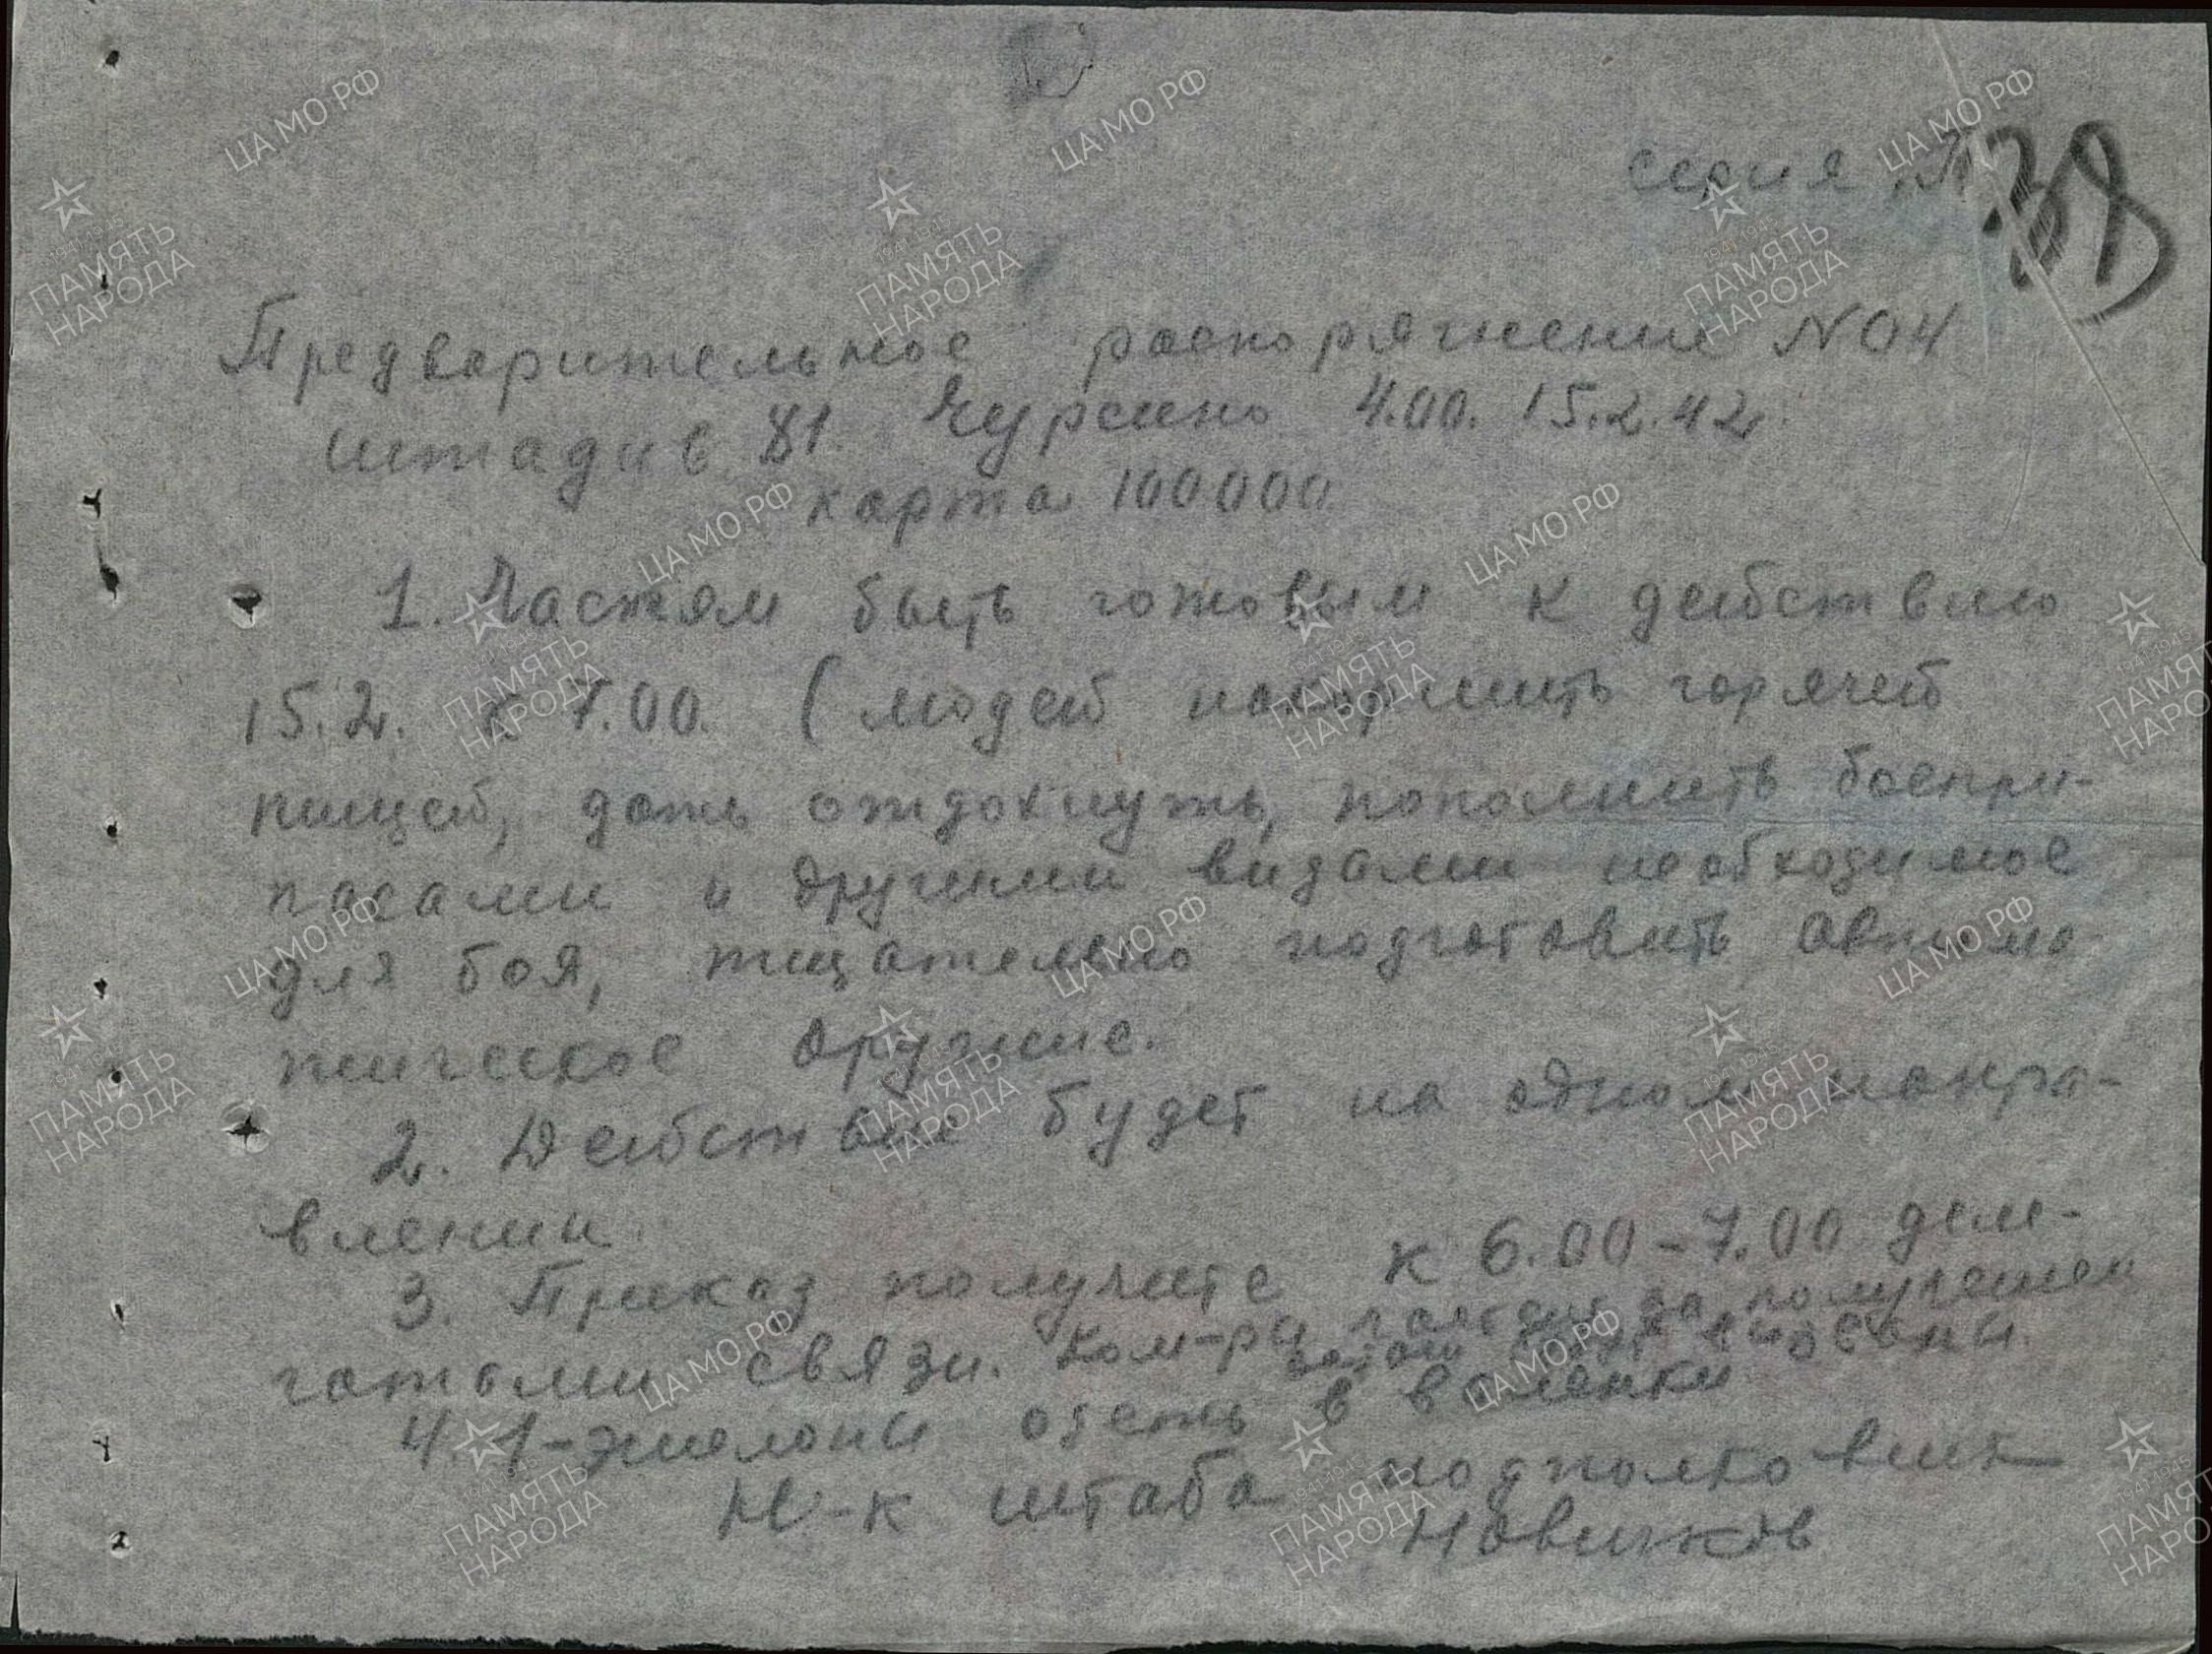 серия
38
Предварительное распоряжение N 04
штадив 81. Чурсино 4.00. 15.2.42.
карта 100000
1. Частям быть готовым к действию
15.2. к 7.00. (людей накормить горячей
пищей, дать отдохнуть, пополнить боепри-
пасами и другими видами необходимое
для боя, тщательно подготовить автома
тическое оружие.
2. Действие будет на одном напра-
влении.
3. Приказ получите к 6.00-7.00 деле-
гатами связи. Ком-ры
4. 1-эшелоны одеть в валенки
Н-к штаба подполковник
Новиков
ЦА МО РФ
ПАМЯТЬ НАРОДА
1941-1945